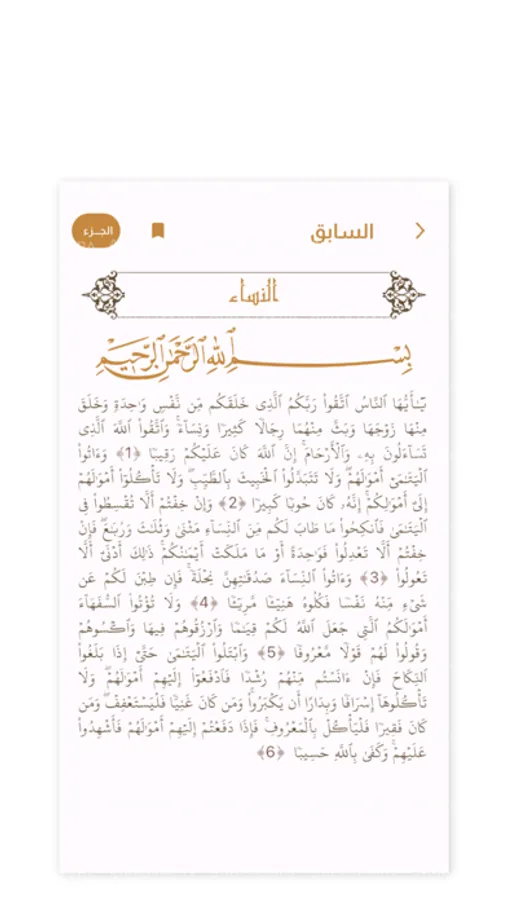 السابق
الجـزء
النساء
بِسْمِ ٱللَّهِ ٱلرَّحْمَٰنِ ٱلرَّحِيمِ
يَـٰٓأَيُّهَا ٱلنَّاسُ ٱتَّقُوا۟ رَبَّكُمُ ٱلَّذِى خَلَقَكُم مِّن نَّفْسٍ وَٰحِدَةٍ وَخَلَقَ
مِنْهَا زَوْجَهَا وَبَثَّ مِنْهُمَا رِجَالًا كَثِيرًا وَنِسَآءً ۚ وَٱتَّقُوا۟ ٱللَّهَ ٱلَّذِى
تَسَآءَلُونَ بِهِۦ وَٱلْأَرْحَامَ ۚ إِنَّ ٱللَّهَ كَانَ عَلَيْكُمْ رَقِيبًا ﴿1﴾ وَءَاتُوا۟
ٱلْيَتَـٰمَىٰٓ أَمْوَٰلَهُمْ ۖ وَلَا تَتَبَدَّلُوا۟ ٱلْخَبِيثَ بِٱلطَّيِّبِ ۖ وَلَا تَأْكُلُوٓا۟ أَمْوَٰلَهُمْ
إِلَىٰٓ أَمْوَٰلِكُمْ ۚ إِنَّهُۥ كَانَ حُوبًا كَبِيرًا ﴿2﴾ وَإِنْ خِفْتُمْ أَلَّا تُقْسِطُوا۟ فِى
ٱلْيَتَـٰمَىٰ فَٱنكِحُوا۟ مَا طَابَ لَكُم مِّنَ ٱلنِّسَآءِ مَثْنَىٰ وَثُلَـٰثَ وَرُبَـٰعَ ۖ فَإِنْ
خِفْتُمْ أَلَّا تَعْدِلُوا۟ فَوَٰحِدَةً أَوْ مَا مَلَكَتْ أَيْمَـٰنُكُمْ ۚ ذَٰلِكَ أَدْنَىٰٓ أَلَّا
تَعُولُوا۟ ﴿3﴾ وَءَاتُوا۟ ٱلنِّسَآءَ صَدُقَـٰتِهِنَّ نِحْلَةً ۚ فَإِن طِبْنَ لَكُمْ عَن
شَىْءٍ مِّنْهُ نَفْسًا فَكُلُوهُ هَنِيٓـًٔا مَّرِيٓـًٔا ﴿4﴾ وَلَا تُؤْتُوا۟ ٱلسُّفَهَآءَ
أَمْوَٰلَكُمُ ٱلَّتِى جَعَلَ ٱللَّهُ لَكُمْ قِيَـٰمًا وَٱرْزُقُوهُمْ فِيهَا وَٱكْسُوهُمْ
وَقُولُوا۟ لَهُمْ قَوْلًا مَّعْرُوفًا ﴿5﴾ وَٱبْتَلُوا۟ ٱلْيَتَـٰمَىٰ حَتَّىٰٓ إِذَا بَلَغُوا۟
ٱلنِّكَاحَ فَإِنْ ءَانَسْتُم مِّنْهُمْ رُشْدًا فَٱدْفَعُوٓا۟ إِلَيْهِمْ أَمْوَٰلَهُمْ ۖ وَلَا
تَأْكُلُوهَآ إِسْرَافًا وَبِدَارًا أَن يَكْبَرُوا۟ ۚ وَمَن كَانَ غَنِيًّا فَلْيَسْتَعْفِفْ ۖ وَمَن
كَانَ فَقِيرًا فَلْيَأْكُلْ بِٱلْمَعْرُوفِ ۚ فَإِذَا دَفَعْتُمْ إِلَيْهِمْ أَمْوَٰلَهُمْ فَأَشْهِدُوا۟
عَلَيْهِمْ ۚ وَكَفَىٰ بِٱللَّهِ حَسِيبًا ﴿6﴾